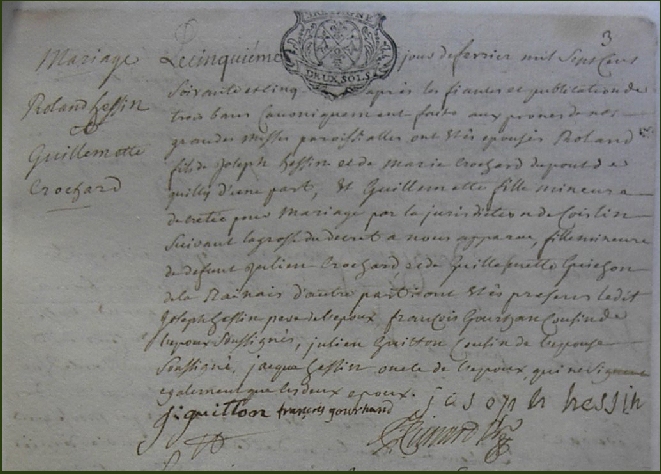 3
BRETAGNE
DEUX SOLS
Mariage
Roland hessin
&
Guillemette
Crochard
Le cinquiéme jour de fevrier mil Sept Cens
Soixante et cinq après les fiances et publication de
trois bans Canoniquement faite aux prones de nos
grandes Messes paroissialles ont étés épousés Roland
fils de Joseph hessin et de Marie Crochard du pont de
quilly d'une part, & Guillemette fille mineure
decretée pour Mariage par la jurisdiction de Coislin
Suivant la grosse du decret a nous apparue, fille mineure
de defunt Julien Crochard, & de Guillemette Guichon
de la Rainais d'autre part. ont étés presens ledit
Joseph hessin pere de l'epoux françois Gourhan Cousin de
l'epoux Soussignés, julien Guitton Cousin de l'epouse
Soussigné, jacque hessin oncle de l'epoux, qui ne Signent
egalement que les deux epoux.
j: guitton françois gourhand joseph hessin